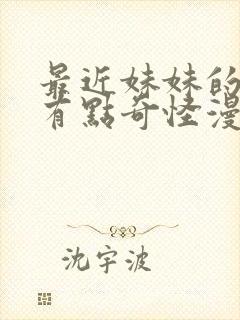 最近妹妹的
有點奇怪漫
沈宇波